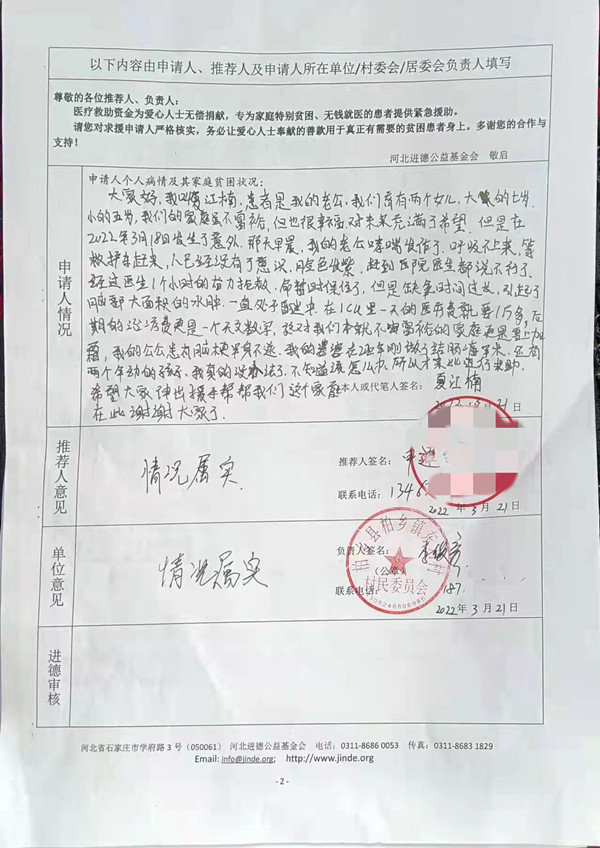 以下内容由申请人、推荐人及申请人所在单位/村委会/居委会负责人填写
尊敬的各位推荐人、负责人：
医疗救助资金为爱心人士无偿捐献，专为家庭特别贫困、无钱就医的患者提供紧急援助。
请您对求援申请人严格核实，务必让爱心人士奉献的善款用于真正有需要的贫困患者身上。多谢您的合作与
支持！
河北进德公益基金会 敬启
申请人情况
申请人个人病情及其家庭贫困状况：
大家好，我叫夏江楠，患者是我的老公，我们育有两个女儿，大的七岁
小的五岁，我们的家庭虽不富裕，但也很幸福，对未来充满了希望，但是在
2022年3月18日发生了意外，那天早晨，我的老公哮喘发作了，呼吸不上来，等
救护车赶来，人已经没有了意识，脸色发紫，赶到医院医生都说不行了，
经过医生1个小时的奋力抢救，命暂时保住了，但是缺氧时间过长，引起了
脑部大面积的水肿，一直处于昏迷中，在ICU里一天的医疗费就要1万多，后
期的治疗费更是一个天文数字，这对我们本就不富裕的家庭更是雪上加
霜，我的公公患有脑梗半身不遂，我的婆婆去年刚做了结肠癌手术，还有
两个年幼的孩子，我真的没办法了，不知道该怎么办，所以才来此进行求助，
希望大家伸出援手帮帮我们这个家庭
在此谢谢大家了.
本人或代笔人签名： 夏江楠
2022.3月21日
推荐人意见
情况属实.
推荐人签名： 申
联系电话：1346
2022 年 3 月 21 日
单位意见
情况属实
负责人签名：
（公章）
联系电话： 187
柏乡县柏乡镇 村
村民委员会
2022 年 3 月 21 日
进德审核
河北省石家庄市学府路 3 号（050061） 河北进德公益基金会 电话：0311-8686 0053 传真：0311-8683 1829
Email: info@jinde.org; http://www.jinde.org
- 2 -